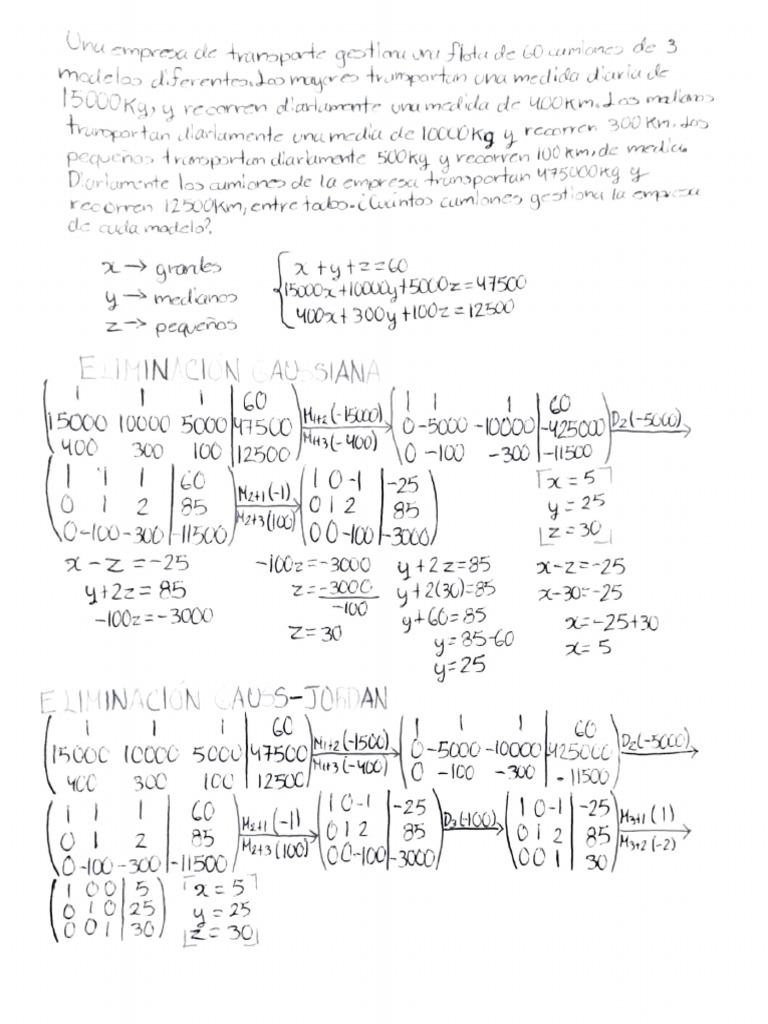 Una empresa de transporte gestiona una flota de 60 camiones de 3
modelos diferentes. Los mayores transportan una medida diaria de
15000Kg, y recorren diariamente una medida de 400km. Los medianos
transportan diariamente una media de 10000Kg y recorren 300 Km. Los
pequeños transportan diariamente 500kg y recorren 100 km, de media.
Diariamente los camiones de la empresa transportan 475000kg y
recorren 12500Km, entre todos. ¿Cuántos camiones gestiona la empresa
de cada modelo?
x → grandes
y → medianos
z → pequeños
x + y + z = 60
15000x + 10000y + 5000z = 47500
400x + 300y + 100z = 12500
ELIMINACIÓN GAUSSIANA
1 1 1 | 60
15000 10000 5000 | 47500
400 300 100 | 12500
M1+2(-15000)
M1+3(-400)
1 1 1 | 60
0 -5000 -10000 | -425000
0 -100 -300 | -11500
D2(-5000)
1 1 1 | 60
0 1 2 | 85
0 -100 -300 | -11500
M2+1(-1)
M2+3(100)
1 0 -1 | -25
0 1 2 | 85
0 0 -100 | -3000
x = 5
y = 25
z = 30
x - z = -25
y + 2z = 85
-100z = -3000
-100z = -3000
z = -3000
-100
z = 30
y + 2z = 85
y + 2(30) = 85
y + 60 = 85
y = 85-60
y = 25
x - z = -25
x - 30 = -25
x = -25+30
x = 5
ELIMINACIÓN GAUSS-JORDAN
1 1 1 | 60
15000 10000 5000 | 47500
400 300 100 | 12500
M1+2(-1500)
M1+3(-400)
1 1 1 | 60
0 -5000 -10000 | 425000
0 -100 -300 | -11500
D2(-5000)
1 1 1 | 60
0 1 2 | 85
0 -100 -300 | -11500
M2+1(-1)
M2+3(100)
1 0 -1 | -25
0 1 2 | 85
0 0 -100 | -3000
D3(-100)
1 0 -1 | -25
0 1 2 | 85
0 0 1 | 30
M3+1(1)
M3+2(-2)
1 0 0 | 5
0 1 0 | 25
0 0 1 | 30
x = 5
y = 25
z = 30